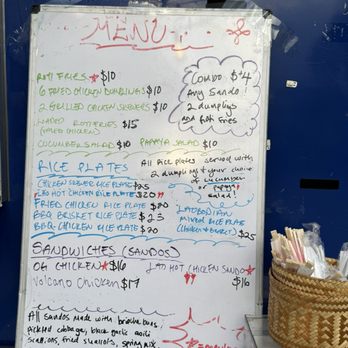 MENU
ROTI FRIES $10
6 FRIED CHICKEN DUMPLINGS $10
2 GRILLED CHICKEN SKEWERS $10
LOADED ROTI FRIES $15
(FRIED CHICKEN)
CUCUMBER SALAD $10 PAPAYA SALAD $10
COMBO $+4
Any Sando!
2 dumplings
AND Roti Fries
RICE PLATES
All rice plates served with
2 dumplings & your choice
of cucumber
or papaya
salad!
CHICKEN SKEWER RICE PLATE $25
LAO HOT CHICKEN RICE PLATE $20
FRIED CHICKEN RICE PLATE $20
BBQ BRISKET RICE PLATE $23
BBQ CHICKEN RICE PLATE $20
MIXED RICE PLATE
(Chicken & Brisket)
$25
SANDWICHES (SANDOS)
OG CHICKEN $16
LAO HOT CHICKEN SANDO
$16
Volcano Chicken $17
All Sandos made with brioche buns,
pickled cabbage, black garlic aioli
scallions, fried shallots, spring mix,